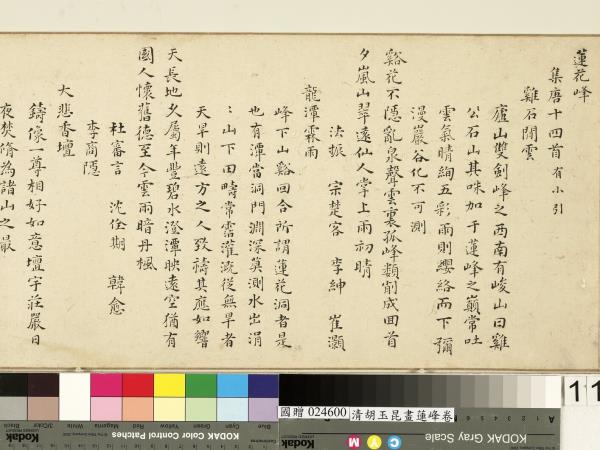 蓮花峰
集唐十四首有小引
雞石閒雲
廬山雙劍峰之西南有峻山曰雞
公石山其咮加于蓮峰之巔常吐
雲氣晴絢五彩雨則纓絡而下彌
漫巖谷化不可測
谿花不隱亂泉聲雲裏孤峰類削成囬首
夕嵐山翠遠仙人掌上雨初晴
法振 宗楚客 李紳 崔顥
龍潭霖雨
峰下山谿回合所謂蓮花洞者是
也有潭當洞門淵深莫測水出涓
:山下田疇常霑灌溉從無旱者
天旱則遠方之人致禱其應如響
天長地久屬年豐碧水澄潭映遠空猶有
國人懷舊德至今雲雨暗丹楓
杜審言 沈佺期 韓愈
李商隱
大悲香壇
鑄像一尊相好如意壇宇莊嚴日
夜焚脩為諸山之最
國贈 024600 清胡玉昆畫蓮峰卷
11
Kodak KODAK Color Control Patches
Blue Cyan Green Yellow Red Magenta White 3/Color Black
KODAK Gray Scale
Kodak
C Y M
A